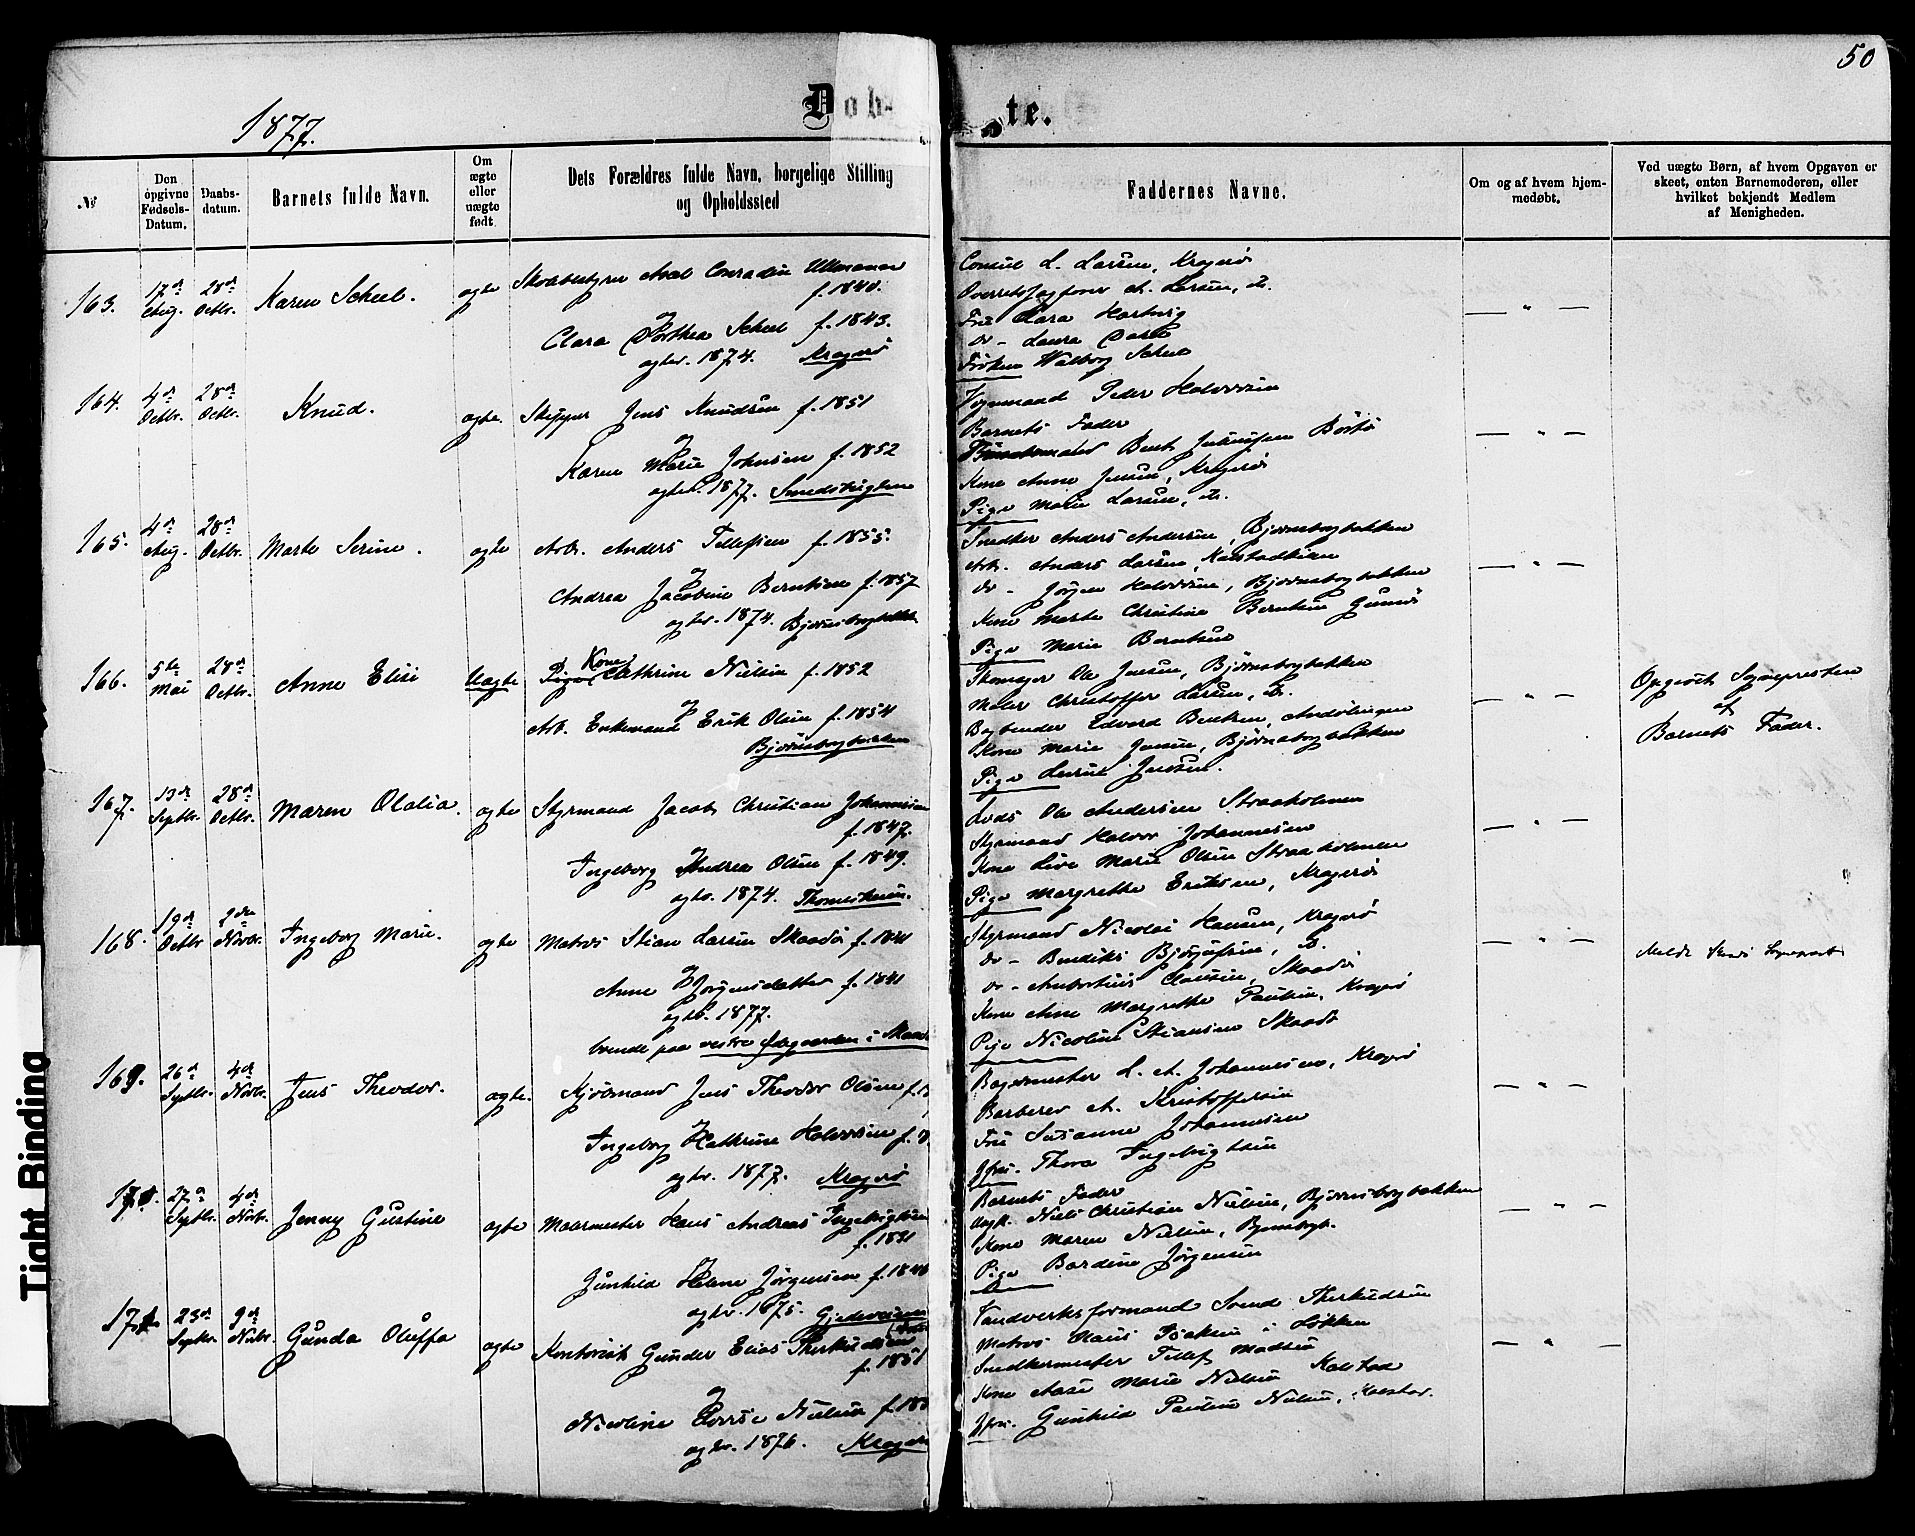 50
1877.
Dob-
te.
№
Den opgivne Fødsels-Datum.
Daabs-datum.
Barnets fulde Navn.
Om ægte eller uægte født
Dets Forældres fulde Navn, borgelige Stilling og Opholdssted
Faddernes Navne.
Om og af hvem hjem-medøbt.
Ved uægte Børn, af hvem Opgaven er skeet, enten Barnemoderen, eller hvilket bekjendt Medlem af Menigheden.
163. 17de Aug. 28de Octbr. Karen Scheel. ægte
Skolebestyrer Axel Conradin Ullmann
f. 1840.
og
Clara Dorthea Scheel f. 1843.
ægtev. 1874. Kragerø
Consul L. Larsen, Kragerø
Overretssagfører A. Larsen, do.
Frü Clara Hartwig
do - Laura
Frøken Walborg Scheel
— " —
164. 4de Octbr. 28de Octbr. Knud. ægte.
Skipper Jens Knudsen f. 1851
og
Karen Marie Johnsen f. 1852
ægtev. 1877. Smedsbugten
Peder Halvorsen
Barnets Fader
Bent Børtø
Kone Anne Jensen, Kragerø
Pige Marie Larsen, do.
— " —
165. 4de Aug. 28de Octbr. Marte Serine. ægte
Arb. Anders Tellefsen f. 1855.
og
Andrea Jacobine Berntsen f. 1857
ægtev. 1874. Bjørnsborgbakken
Snedker Anders Andersen, Bjørnsborgbakken
Arb. Anders Larsen, Kalstadkilen
do - Jørgen Halvorsen, Bjørnsborgbakken
Kone Marte Christine Berntsen Gumø
Pige Marie Berntsen
— " —
166. 5te Mai 28de Octbr. Anne Elise Uægte
Pige Kone Cathrine Nielsen f. 1852
og
Arb. Enkemand Erik Olsen f. 1854
Bjørnsborgbakken
Ole Jensen, Bjørnsborgbakken
Maler Christoffer Larsen, do.
Bogbinder Edvard Bentzen,
Kone Marie Jensen, Bjørnsborgbakken
Pige Laurine Jensen.
— " —
Opgivet Sognepresten
af
Barnets Fader.
167. 13de Septbr. 28de Octbr. Maren Olalia. ægte
Styrmand Jacob Christian Johannesen
f. 1847.
og
Ingeborg Andrea Olsen f. 1849.
ægtev. 1874.
Lods Ole Andersen Straaholmen
Styrmand Halvor Johannesen
Kone Live Marie Olsen Straaholmen
Pige Margrethe Eriksen, Kragerø
— " —
168. 19de Octbr. 2den Novbr. Ingeborg Marie. ægte
Matros Stian Larsen Skaadø f. 1841
og
Anne Jørgensdatter f. 1841
ægtev. 1877.
boende paa vestre i Skaadø
Styrmand Nicolai Hansen, Kragerø
do - Bendiks do.
do - Clausen, Skaadø
Kone Anne Margrethe Paulsen, Kragerø
Pige Nicoline Stiansen Skaadø
— " —
169. 26de Septbr. 4de Novbr. Jens Theodor. ægte.
Kjøbmand Jens Theodor Olsen f.
og
Ingeborg Kathrine Halvorsen f.
ægtev. 1877. Kragerø
Bagermester L. A. Johannesen, Kragerø
Barberer A. Kristoffersen
Frü Susanne Johannesen
Jfru. Thora Ingebrigtsen
— " —
170. 27de Septbr. 4de Novbr. Jenny Gustine ægte
Malermester Hans Andreas Ingebrigtsen
f. 1831
og
Gunhild Helene Jørgensen f. 1846
ægtev. 1875.
Barnets Fader
Niels Christian Nielsen, Bjørnsborgbakken
Kone Maren Nielsen, Bjørnsbgb.
Pige Bardine Jørgensen
— " —
171 23de Septbr. 9de Novbr. Gunda Oluffa ægte
Kontorist Gunder Elias Therkildsen
f. 1851
og
Nicoline Nielsen f. 185
ægtev. 1876. Kragerø
Tandverksformand Svend Therkildsen
Matros Claus Isaksen i Løkken
Snedkermester Tellef Madsen
Kone Aase Marie Nielsen Kalstad
Jfru. Gunhild Pauline Nielsen, Kalstad.
— " —
Tight Binding